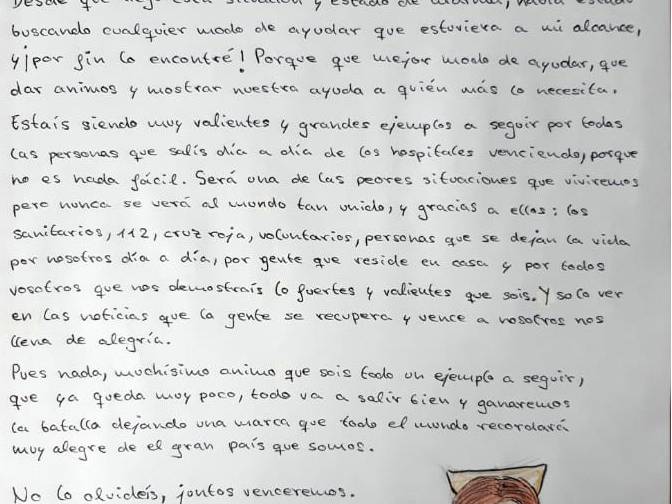 buscando cualquier modo de ayudar que estuviera a mi alcance,
y ¡por fin lo encontré! Porque que mejor modo de ayudar, que
dar animos y mostrar nuestra ayuda a quién más lo necesita.
Estaís siendo muy valientes y grandes ejemplos a seguir por todas
las personas que salís día a día de los hospitales venciendo, porque
no es nada fácil. Será una de las peores situaciones que viviremos
pero nunca se verá al mundo tan unido, y gracias a ellos: los
sanitarios, 112, cruz roja, voluntarios, personas que se dejan la vida
por nosotros día a día, por gente que reside en casa y por todos
vosotros que nos demostraís lo fuertes y valientes que sois. Y solo ver
en las noticias que la gente se recupera y vence a nosotros nos
llena de alegría.
Pues nada, muchísimo animo que sois todo un ejemplo a seguir,
que ya queda muy poco, todo va a salir bien y ganaremos
la batalla dejando una marca que todo el mundo recordará
muy alegre de el gran país que somos.
No lo olvideís, juntos venceremos.